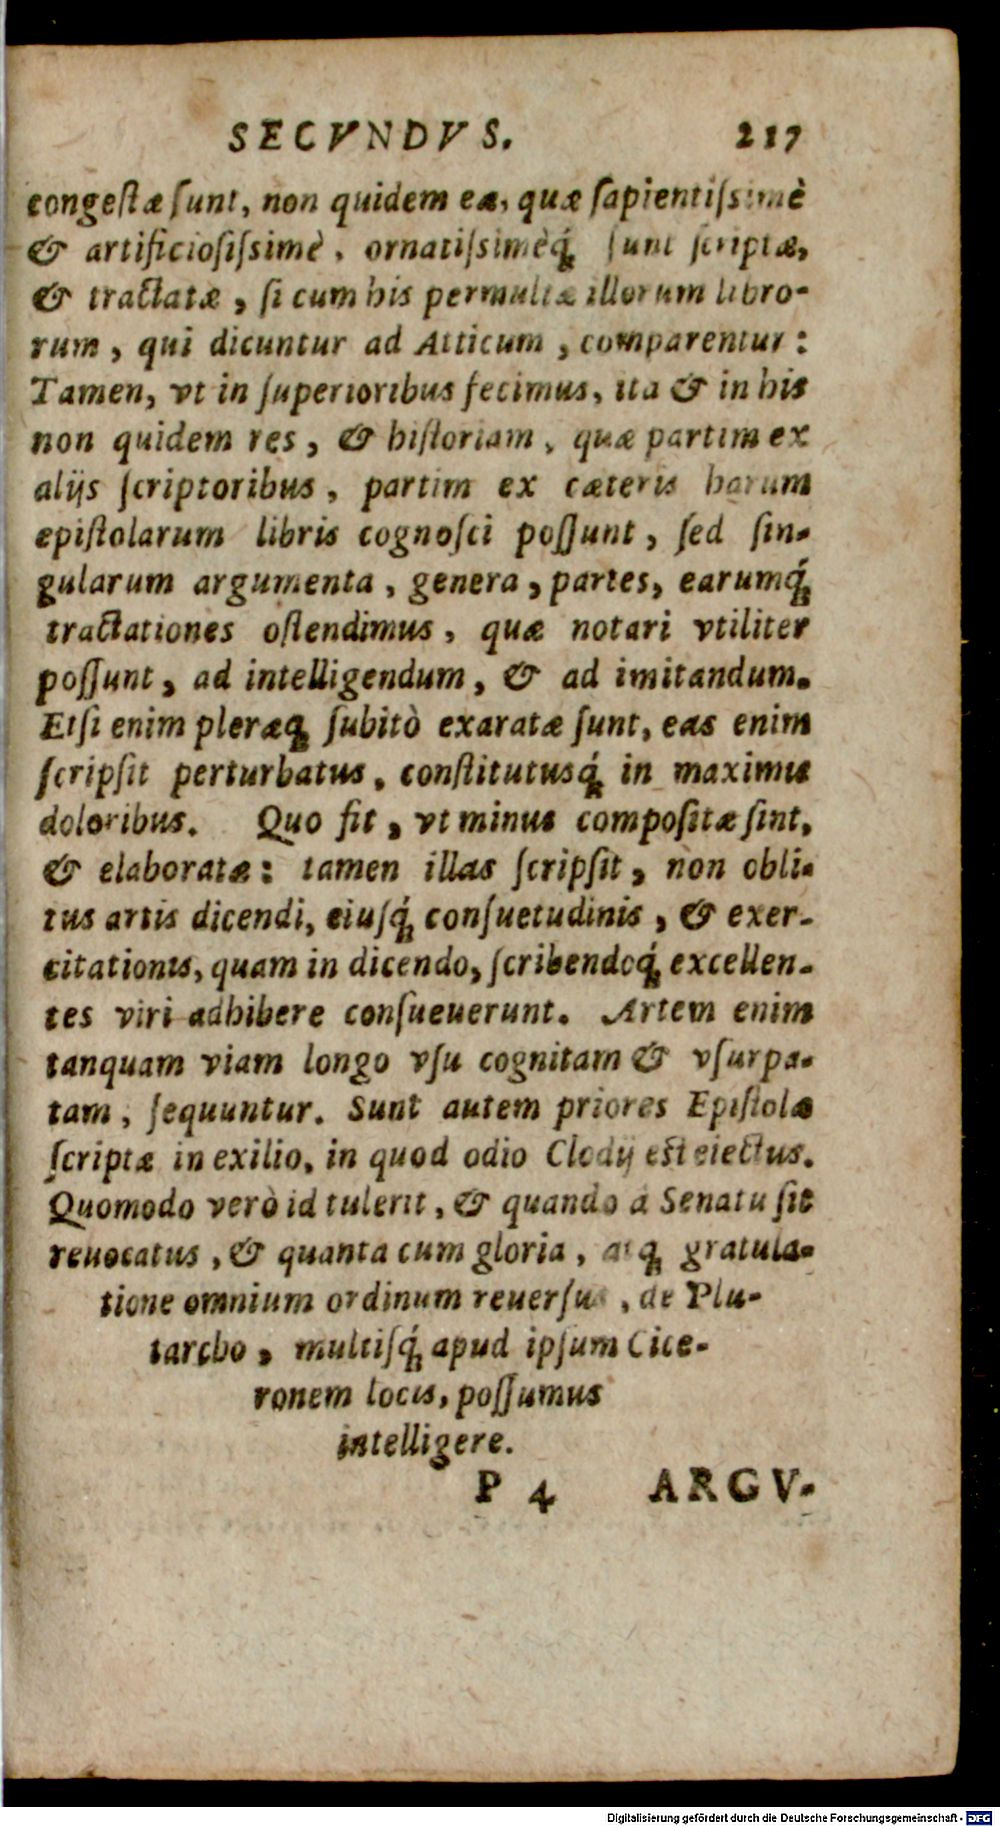 SECVNDVS. 217
congeſtæ ſunt, non quidem eæ, quæ ſapientiſsimè
& artificioſiſsimè, ornatiſsimèq́; ſunt ſcriptæ,
& tractatæ, ſi cum his permultæ illorum libro-
rum, qui dicuntur ad Atticum, comparentur:
Tamen, vt in ſuperioribus fecimus, ita & in his
non quidem res, & hiſtoriam, quæ partim ex
alijs ſcriptoribus, partim ex cæteris harum
epiſtolarum libris cognoſci poſſunt, ſed ſin-
gularum argumenta, genera, partes, earumq́;
tractationes oſtendimus, quæ notari vtiliter
poſſunt, ad intelligendum, & ad imitandum.
Etſi enim pleræq; ſubitò exaratæ ſunt, eas enim
ſcripſit perturbatus, conſtitutusq́; in maximis
doloribus. Quo fit, vt minus compoſitæ ſint,
& elaboratæ: tamen illas ſcripſit, non obli-
tus artis dicendi, eiuſq́; conſuetudinis, & exer-
citationis, quam in dicendo, ſcribendoq́; excellen-
tes viri adhibere conſueuerunt. Artem enim
tanquam viam longo vſu cognitam & vſurpa-
tam, ſequuntur. Sunt autem priores Epiſtolæ
ſcriptæ in exilio, in quod odio Clodij eſt eiectus.
Quomodo verò id tulerit, & quando à Senatu ſit
reuocatus, & quanta cum gloria, atq; gratula-
tione omnium ordinum reuerſus, de Plu-
tarcho, multiſq́; apud ipſum Cice-
ronem locis, poſſumus
intelligere.
P 4 ARGV-
Digitalisierung gefördert durch die Deutsche Forschungsgemeinschaft - DFG